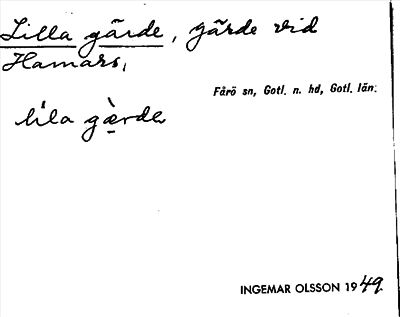 Lilla gärde, gärde vid
Hamars,
Fårö sn, Gotl. n. hd, Gotl. län.
lila gärde
INGEMAR OLSSON 1949.